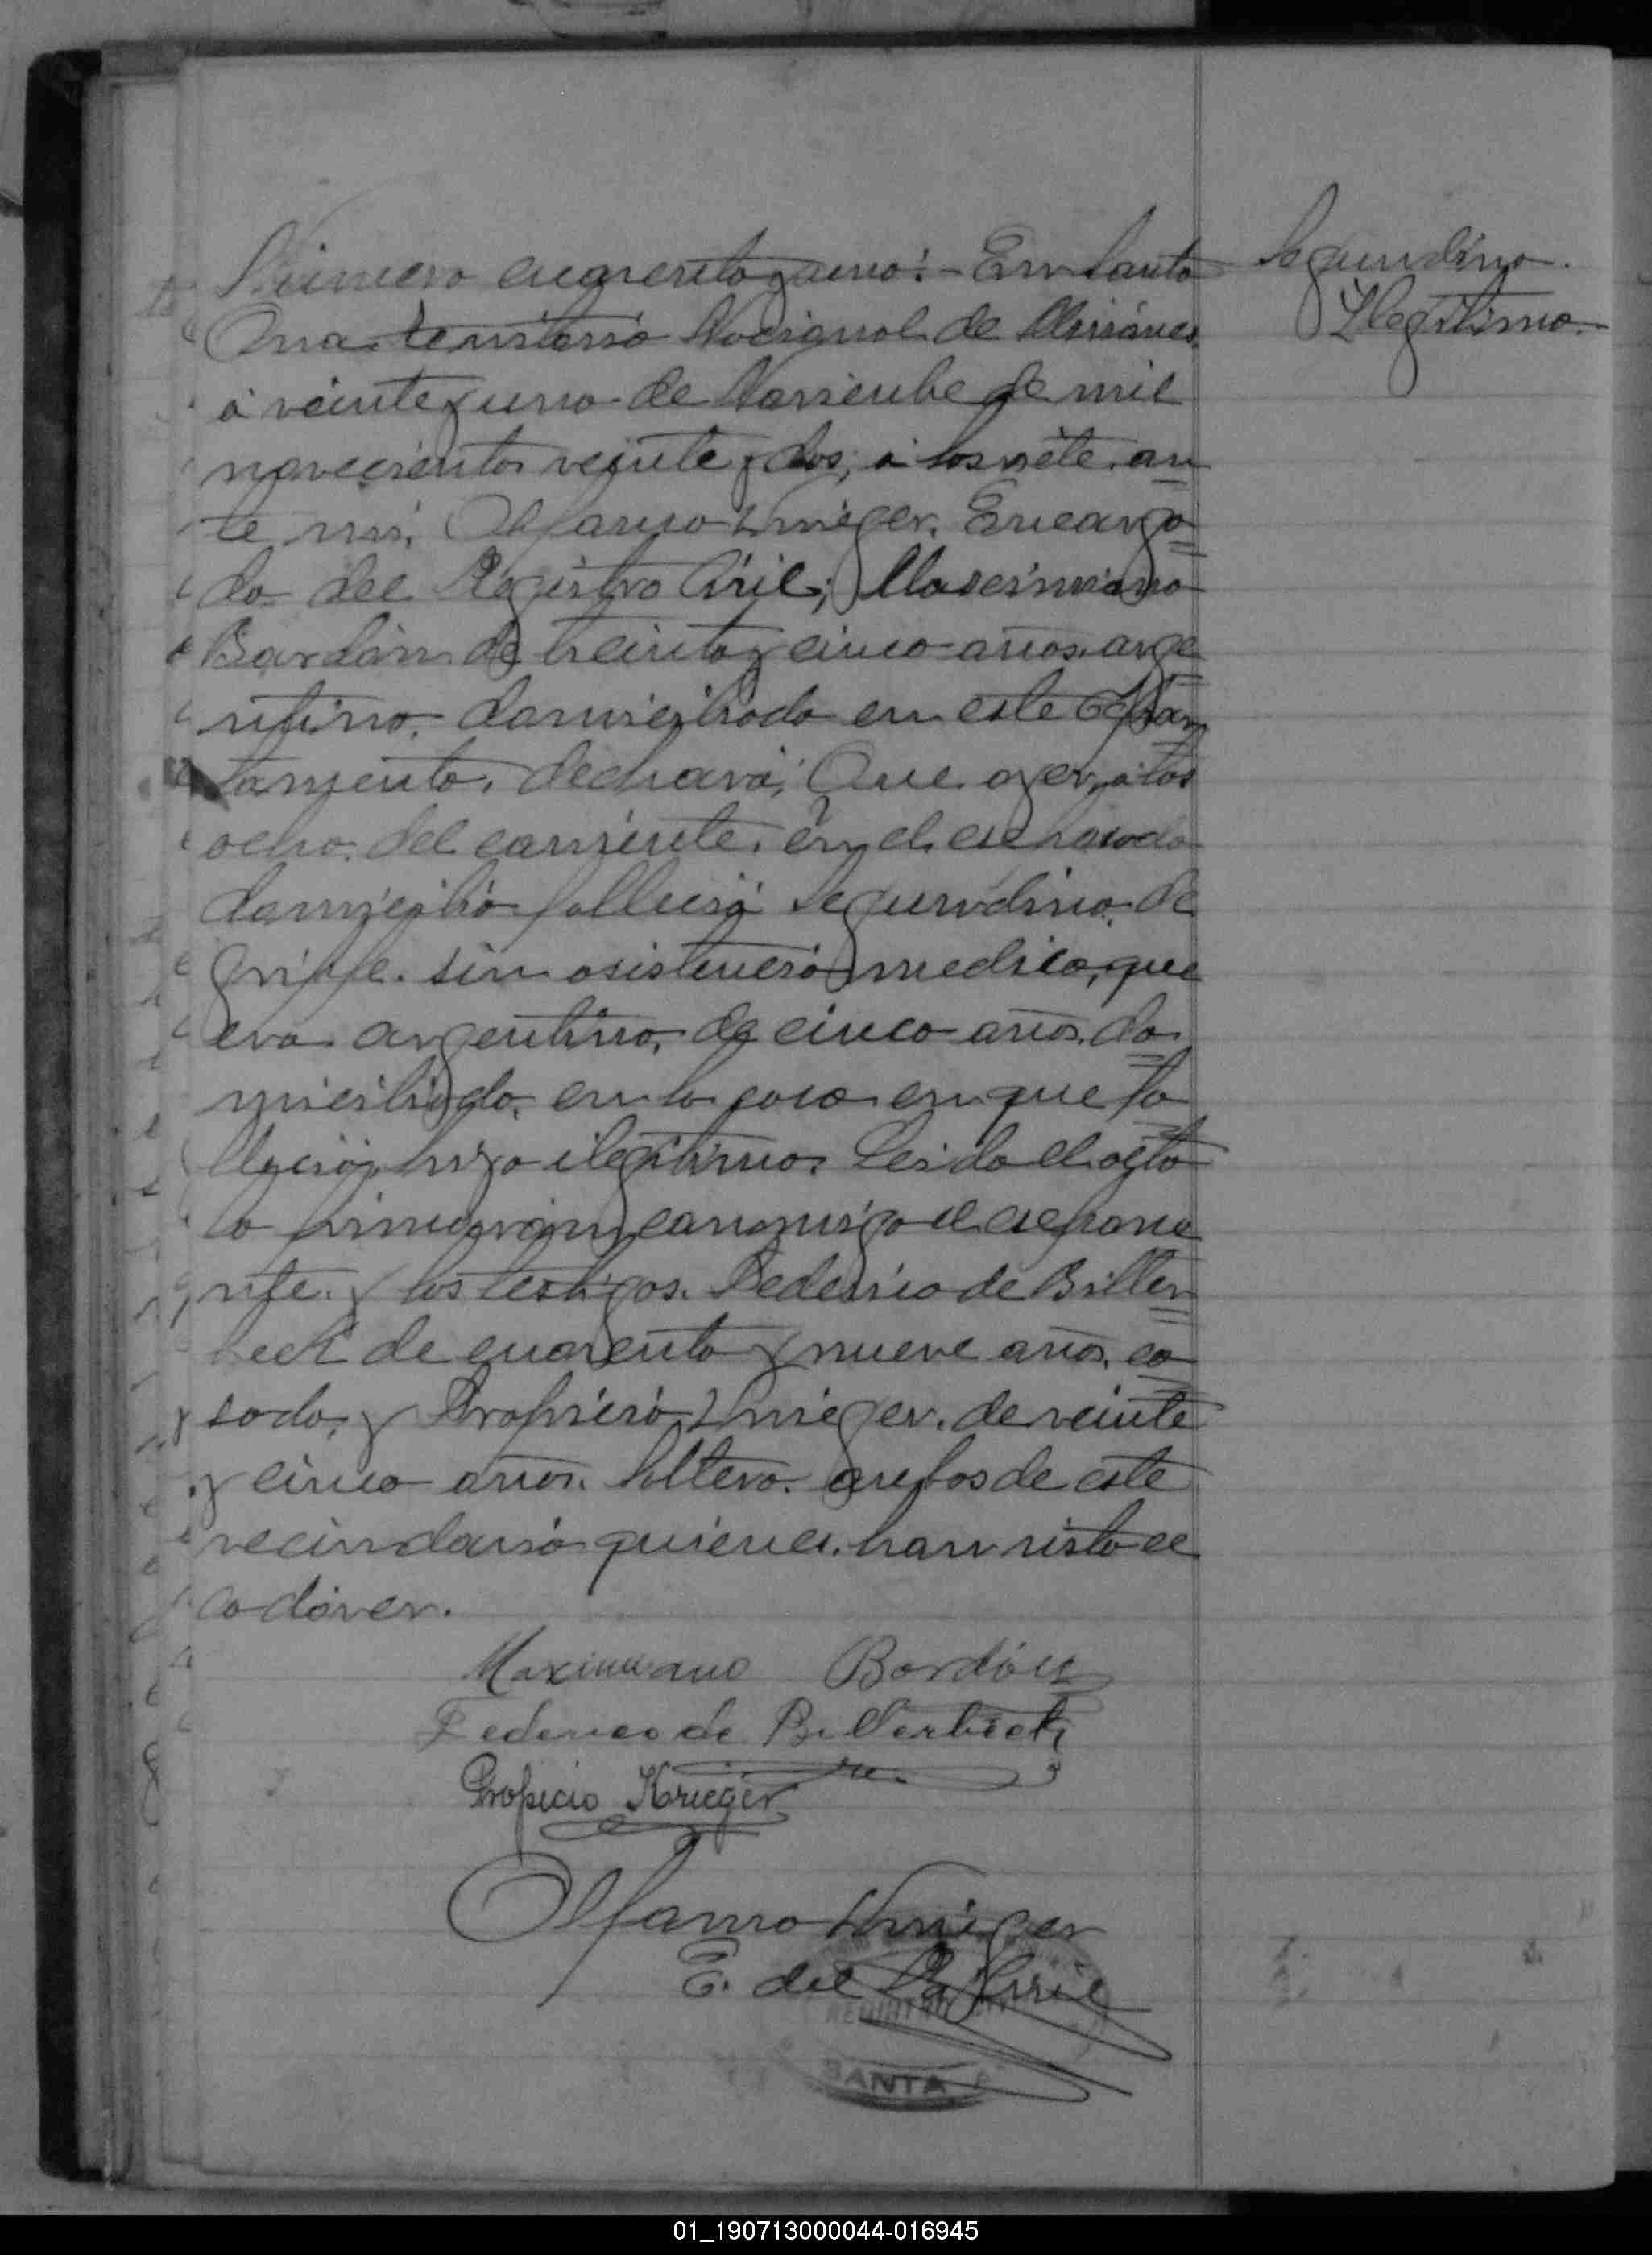 Número cuarenta y uno: - En Santa
Ana territorio Nacional de Misiones,
á veinte y uno de Noviembe de mil
novecientos veinte y dos, á las siete, an
te mí, Alfanso Krieger, Encarga
do del Registro Civil; Macsimiano
Bordón de treinta y cinco años, arge
ntino, domiciliado en este Depar
tamento, declaró; Que ayer, á las
ocho, del corriente, en el espresado
domicilio falleció Segundino, de
Grippe. sin asistencia medica, que
era argentino, de cinco años, do
miciliado, en la casa en que fa
lleció, hijo ilegitimo. Leida el acta
la firmaron conmigo el espone
nte. y los testigos. Federico de Biller
beck de cuarenta y nueve años, ca
sado, y Propicio Krieger, de veinte
y cinco años. Soltero. anbos de este
vecindario quienes han visto el
cadáver.
Segundino.
Ilegítimo.
Maximiano Bordón
Federico de Billerbeck
Propicio Krieger
Alfanso Krieger
E. del R. Civil
REGISTRO
SANTA
01_190713000044-016945